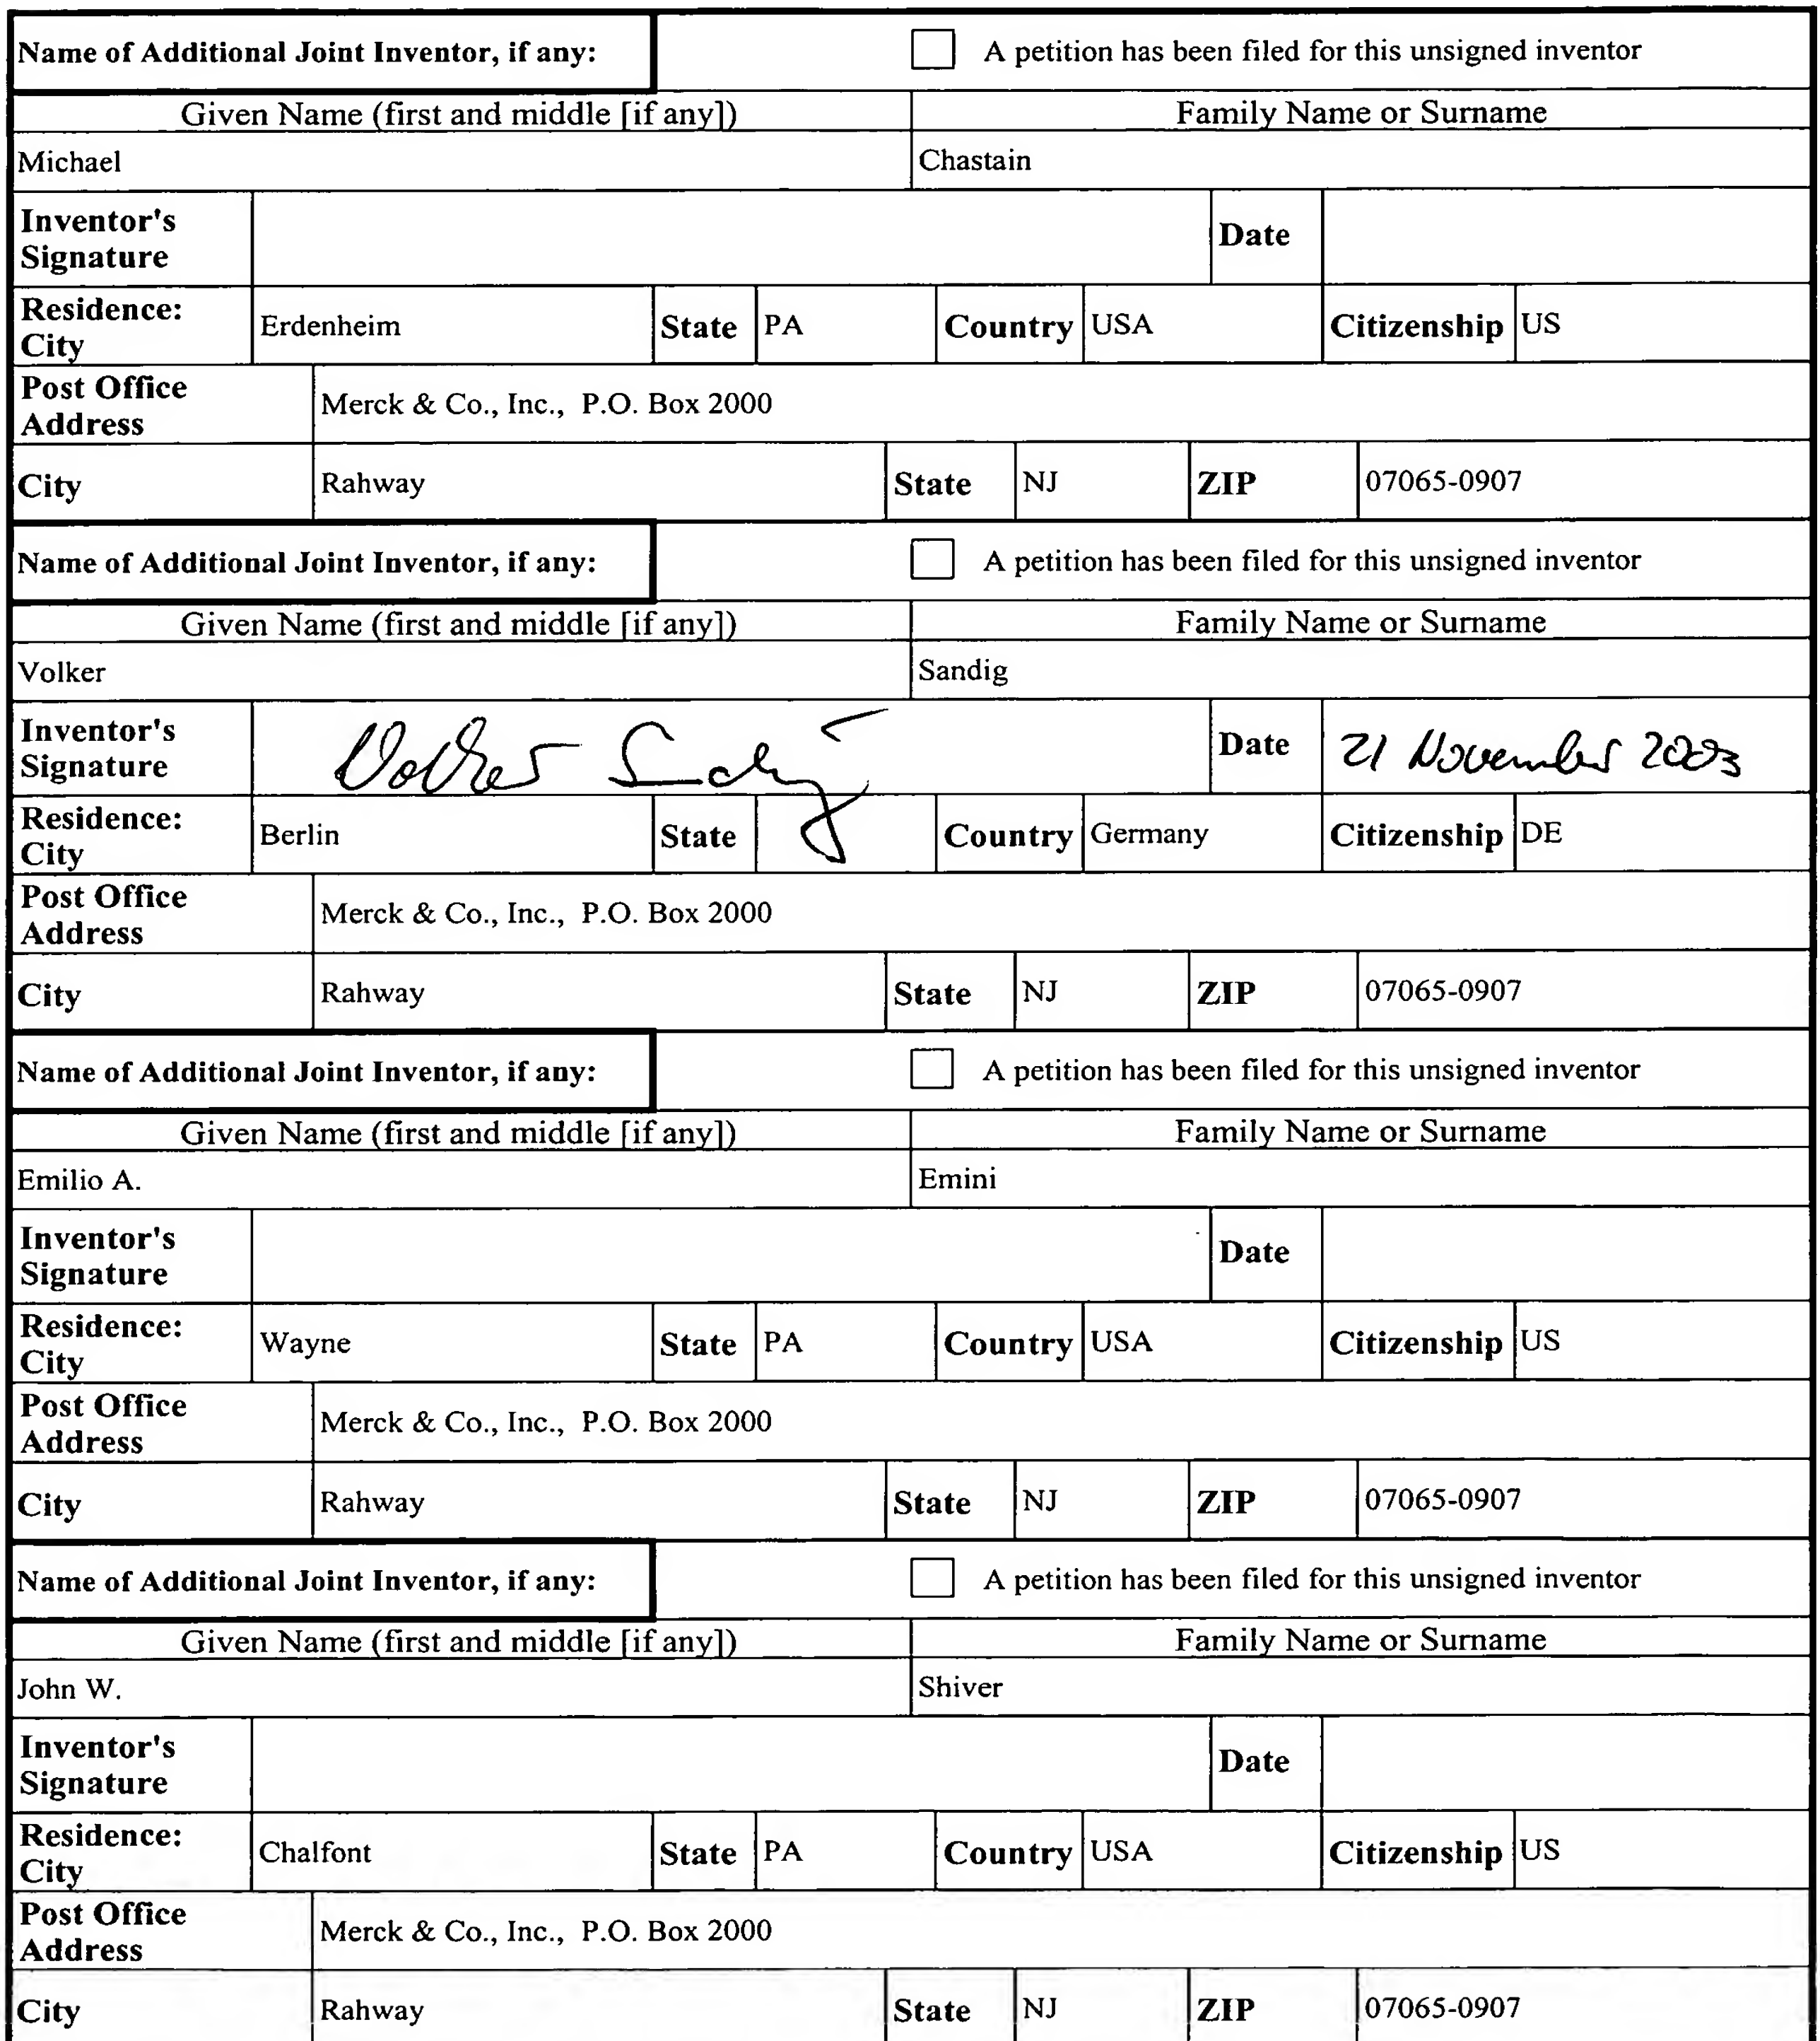 Name of Additional Joint Inventor, if any: A petition has been filed for this unsigned inventor
Given Name (first and middle [if any]) Family Name or Surname
Michael Chastain
Inventor's
Signature Date
Residence:
City Erdenheim State PA Country USA Citizenship US
Post Office
Address Merck & Co., Inc., P.O. Box 2000
City Rahway State NJ ZIP 07065-0907
Name of Additional Joint Inventor, if any: A petition has been filed for this unsigned inventor
Given Name (first and middle [if any]) Family Name or Surname
Volker Sandig
Inventor's
Signature Volker Sandig Date 21 November 2003
Residence:
City Berlin State Country Germany Citizenship DE
Post Office
Address Merck & Co., Inc., P.O. Box 2000
City Rahway State NJ ZIP 07065-0907
Name of Additional Joint Inventor, if any: A petition has been filed for this unsigned inventor
Given Name (first and middle [if any]) Family Name or Surname
Emilio A. Emini
Inventor's
Signature Date
Residence:
City Wayne State PA Country USA Citizenship US
Post Office
Address Merck & Co., Inc., P.O. Box 2000
City Rahway State NJ ZIP 07065-0907
Name of Additional Joint Inventor, if any: A petition has been filed for this unsigned inventor
Given Name (first and middle [if any]) Family Name or Surname
John W. Shiver
Inventor's
Signature Date
Residence:
City Chalfont State PA Country USA Citizenship US
Post Office
Address Merck & Co., Inc., P.O. Box 2000
City Rahway State NJ ZIP 07065-0907